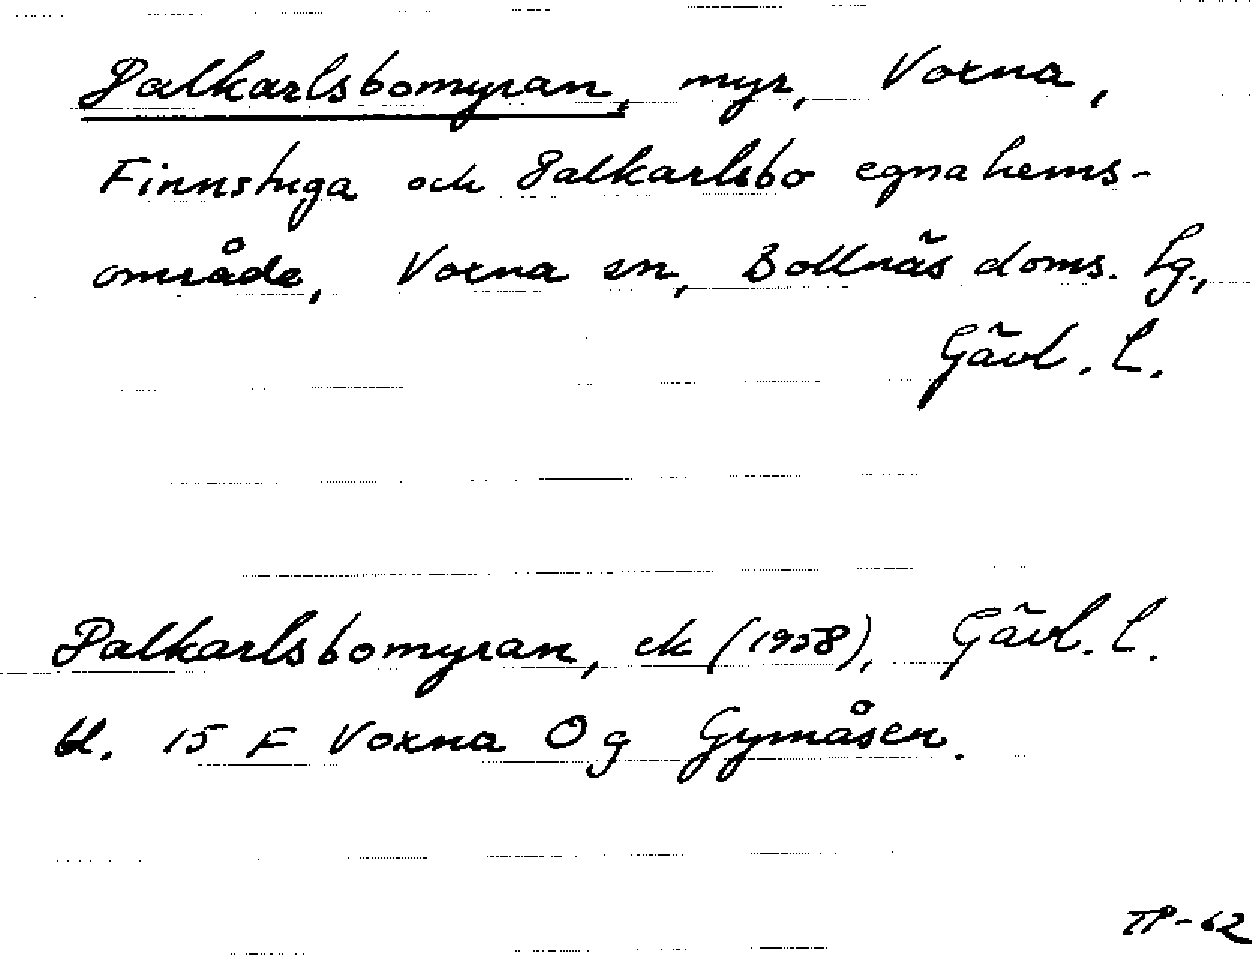 Palkarlsbomyran, myr, Voxna,
Finnstuga och Palkarlsbo egnahems-
område, Voxna sn, Bollnäs doms. lg.,
Gävl. l.
Palkarlsbomyran, ek (1958), Gävl. l.
Bl. 15 F Voxna O g Gymåsen.
TP-62